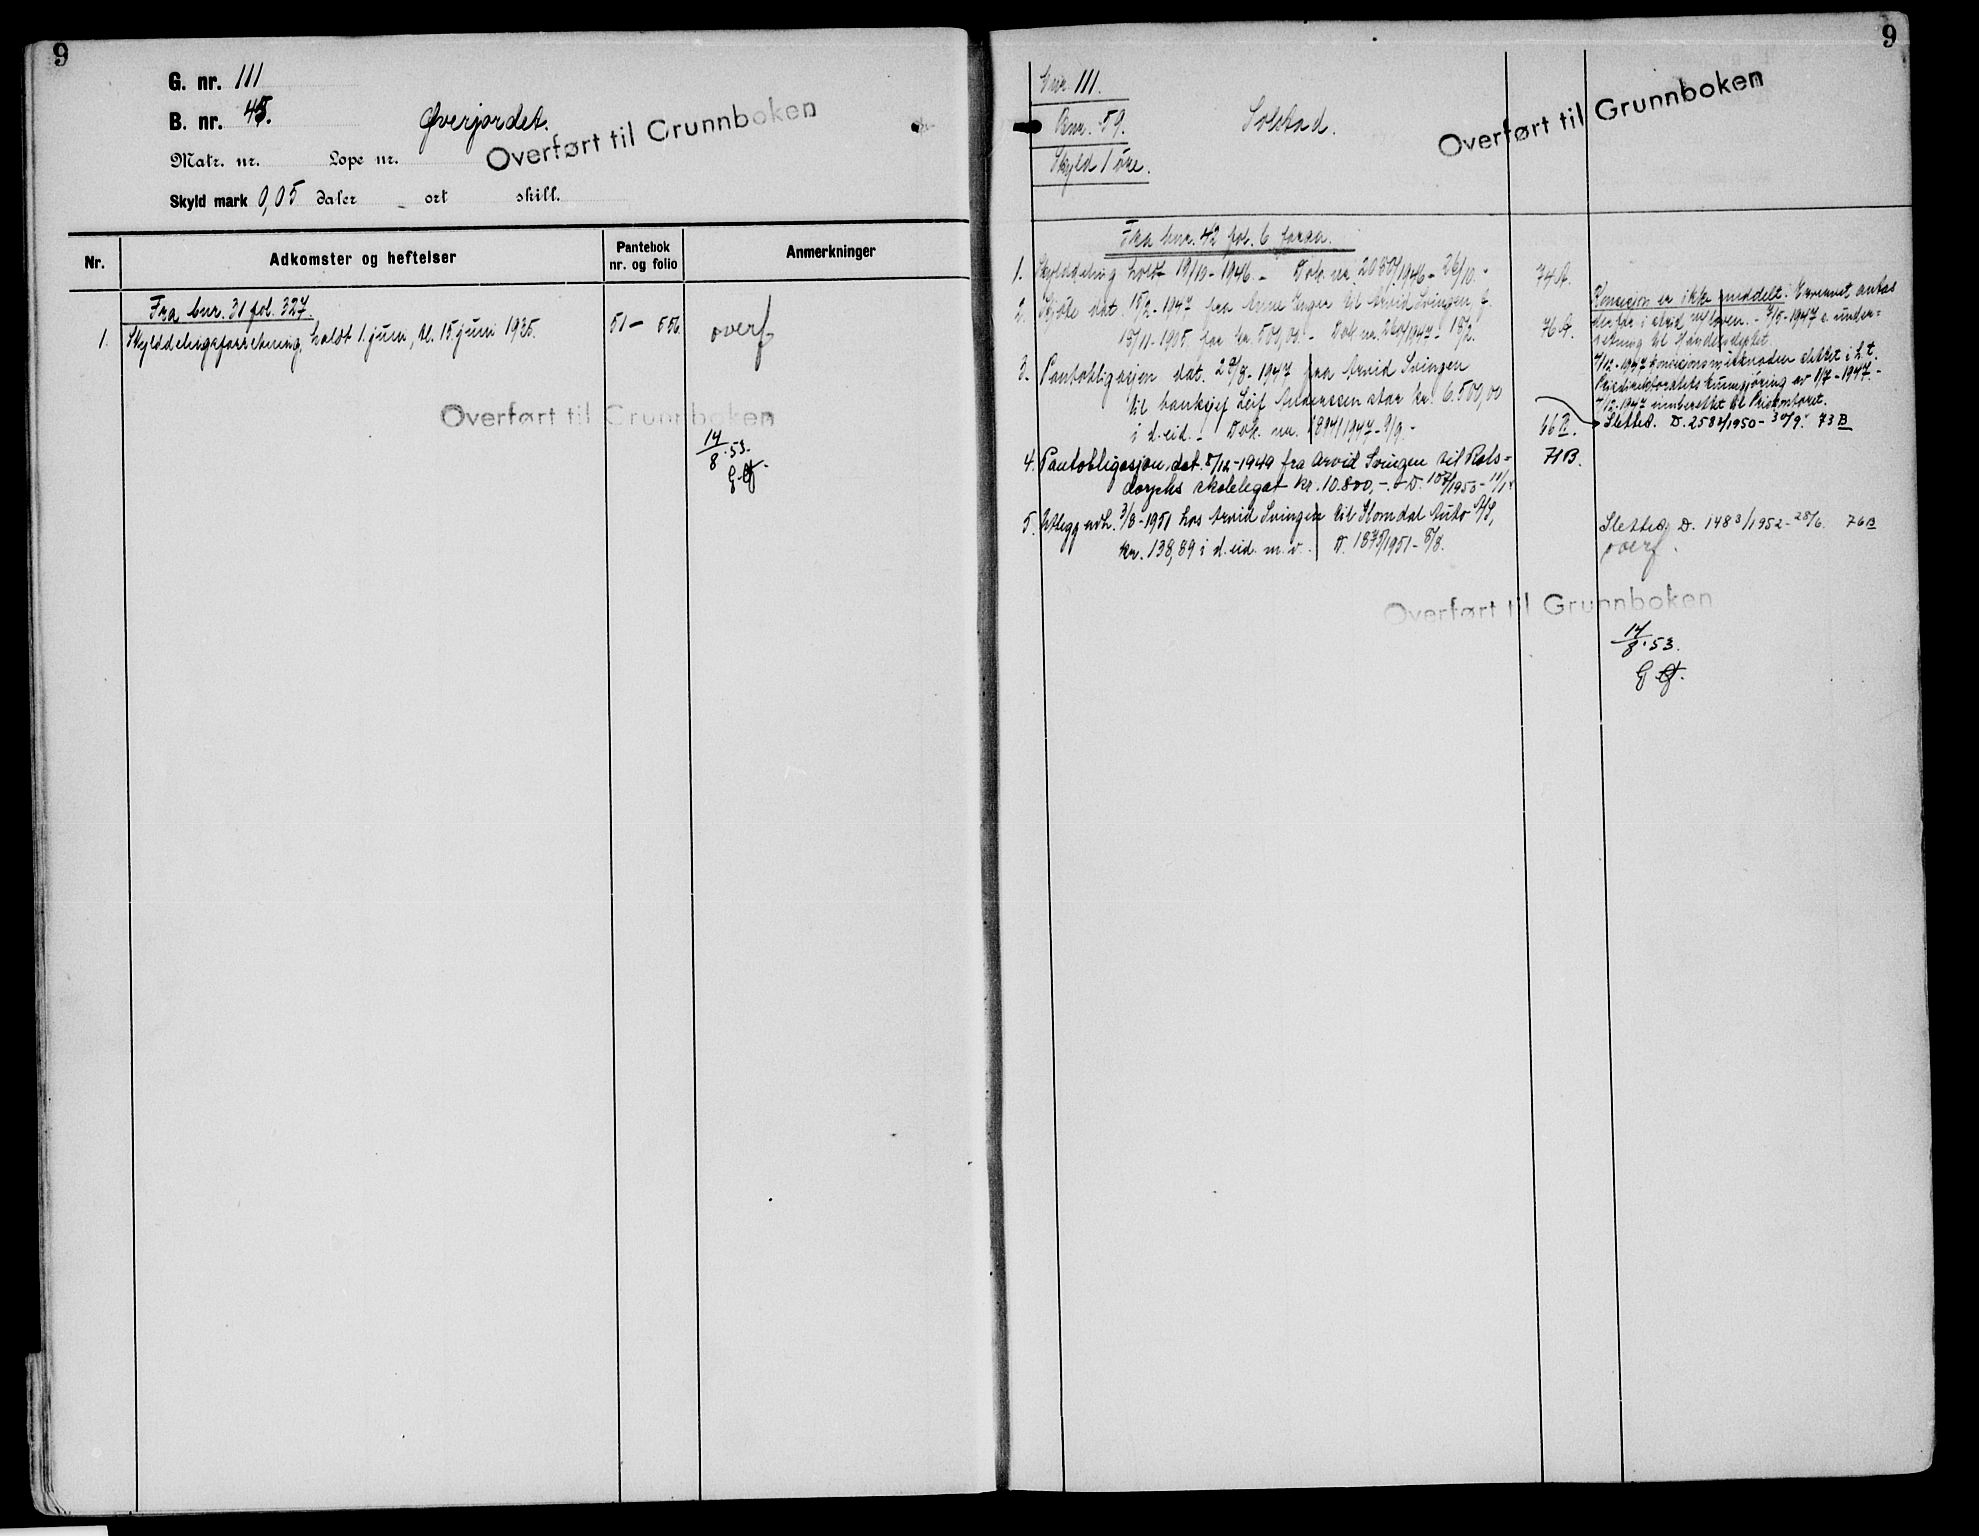 9
G. nr. 111
B. nr. 45.
Øverjordet.
Overført til Grunnboken
Matr. nr. Løpe nr.
Skyld mark 0,05 daler ort skill.
Nr. Adkomster og heftelser Pantebok nr. og folio Anmerkninger
Fra bnr. 31 fol. 327.
1. Skylddelingsforretning, holdt 1. juni, tl. 15. juni 1935. 51 — 556 overf
Overført til Grunnboken
14/8.53.
9
Gnr. 111.
Bnr. 59.
Skyld 1 øre.
Solstad.
Overført til Grunnboken
Fra bnr. 42 fol. 6 foran.
1. Skylddeling holdt 19/10-1946. - Dok. nr. 2050/1946 - 26/10. - 74A.
2. Skjøte dat. 15/2-1947 fra Arne Enger til Arvid Svingen, f.
15/11-1905 for kr. 500,00. - Dok. nr. 260/1947 - 18/2. 76A.
Konsesjon er ikke meddelt. Ervervet antas
derfor i strid m/loven. - 3/5-1947 s. under-
retning til Landbr.deptet.
4/12-1947 Konsesjonsmerknaden slettet i h.t.
Prisdirektoratets kunngjøring av 1/7-1947. -
4/12-1947 innberettet til Priskontoret.
3. Pantobligasjon dat. 29/8-1947 fra Arvid Svingen
til banksjef Leif Anderssen stor kr. 6.500,00
i d. eid. - Dok. nr. 1894/1947 - 9/9. - 66B.
Slettet. D. 2582/1950 - 30/9. 73B
4. Pantobligasjon dat. 5/12-1949 fra Arvid Svingen til Rols=
dorphs skolelegat kr. 10.800,-. D. 102/1950 - 11/1. 71B.
5. Utlegg avh. 3/8-1951 hos Arvid Svingen til Stomdal Auto A/S,
kr. 138,89 i d. eid. m.v. D. 1875/1951 - 8/8.
Slettet D. 1483/1952 - 28/6. 76B
overf.
Overført til Grunnboken
14/8.53.